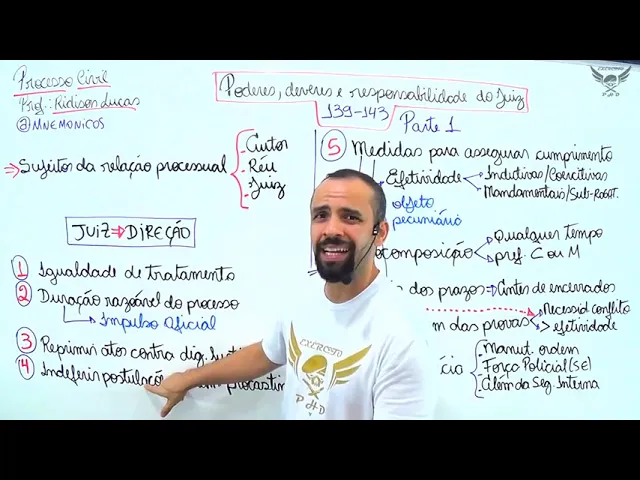 Processo Civil
Prof.: Ridison Lucas
@MNEMONICOS
Poderes, deveres e responsabilidade do Juiz
139-143
Parte 1
EXERCITO
P H D
⇒ Sujeitos da relação processual
- Autor
- Réu
- Juiz
JUIZ ⇒ DIREÇÃO
1 Igualdade de tratamento
2 Duração razoável do processo
Impulso Oficial
3 Reprimir atos contra dig.
4 Indeferir postulaçõ procastin
5 Medidas para assegurar cumprimento
Efetividade
Indutivas/Coercitivas
Mandamentais/Sub-Rogat.
objeto
pecuniário
composição
Qualquer tempo
pref. C ou M
dos prazos
Antes de encerrados
m das provas
Necessid. conflito
> efetividade
cia
Manut. ordem
Força Policial (SE)
Além da Seg. Interna
EXERCITO
P H D